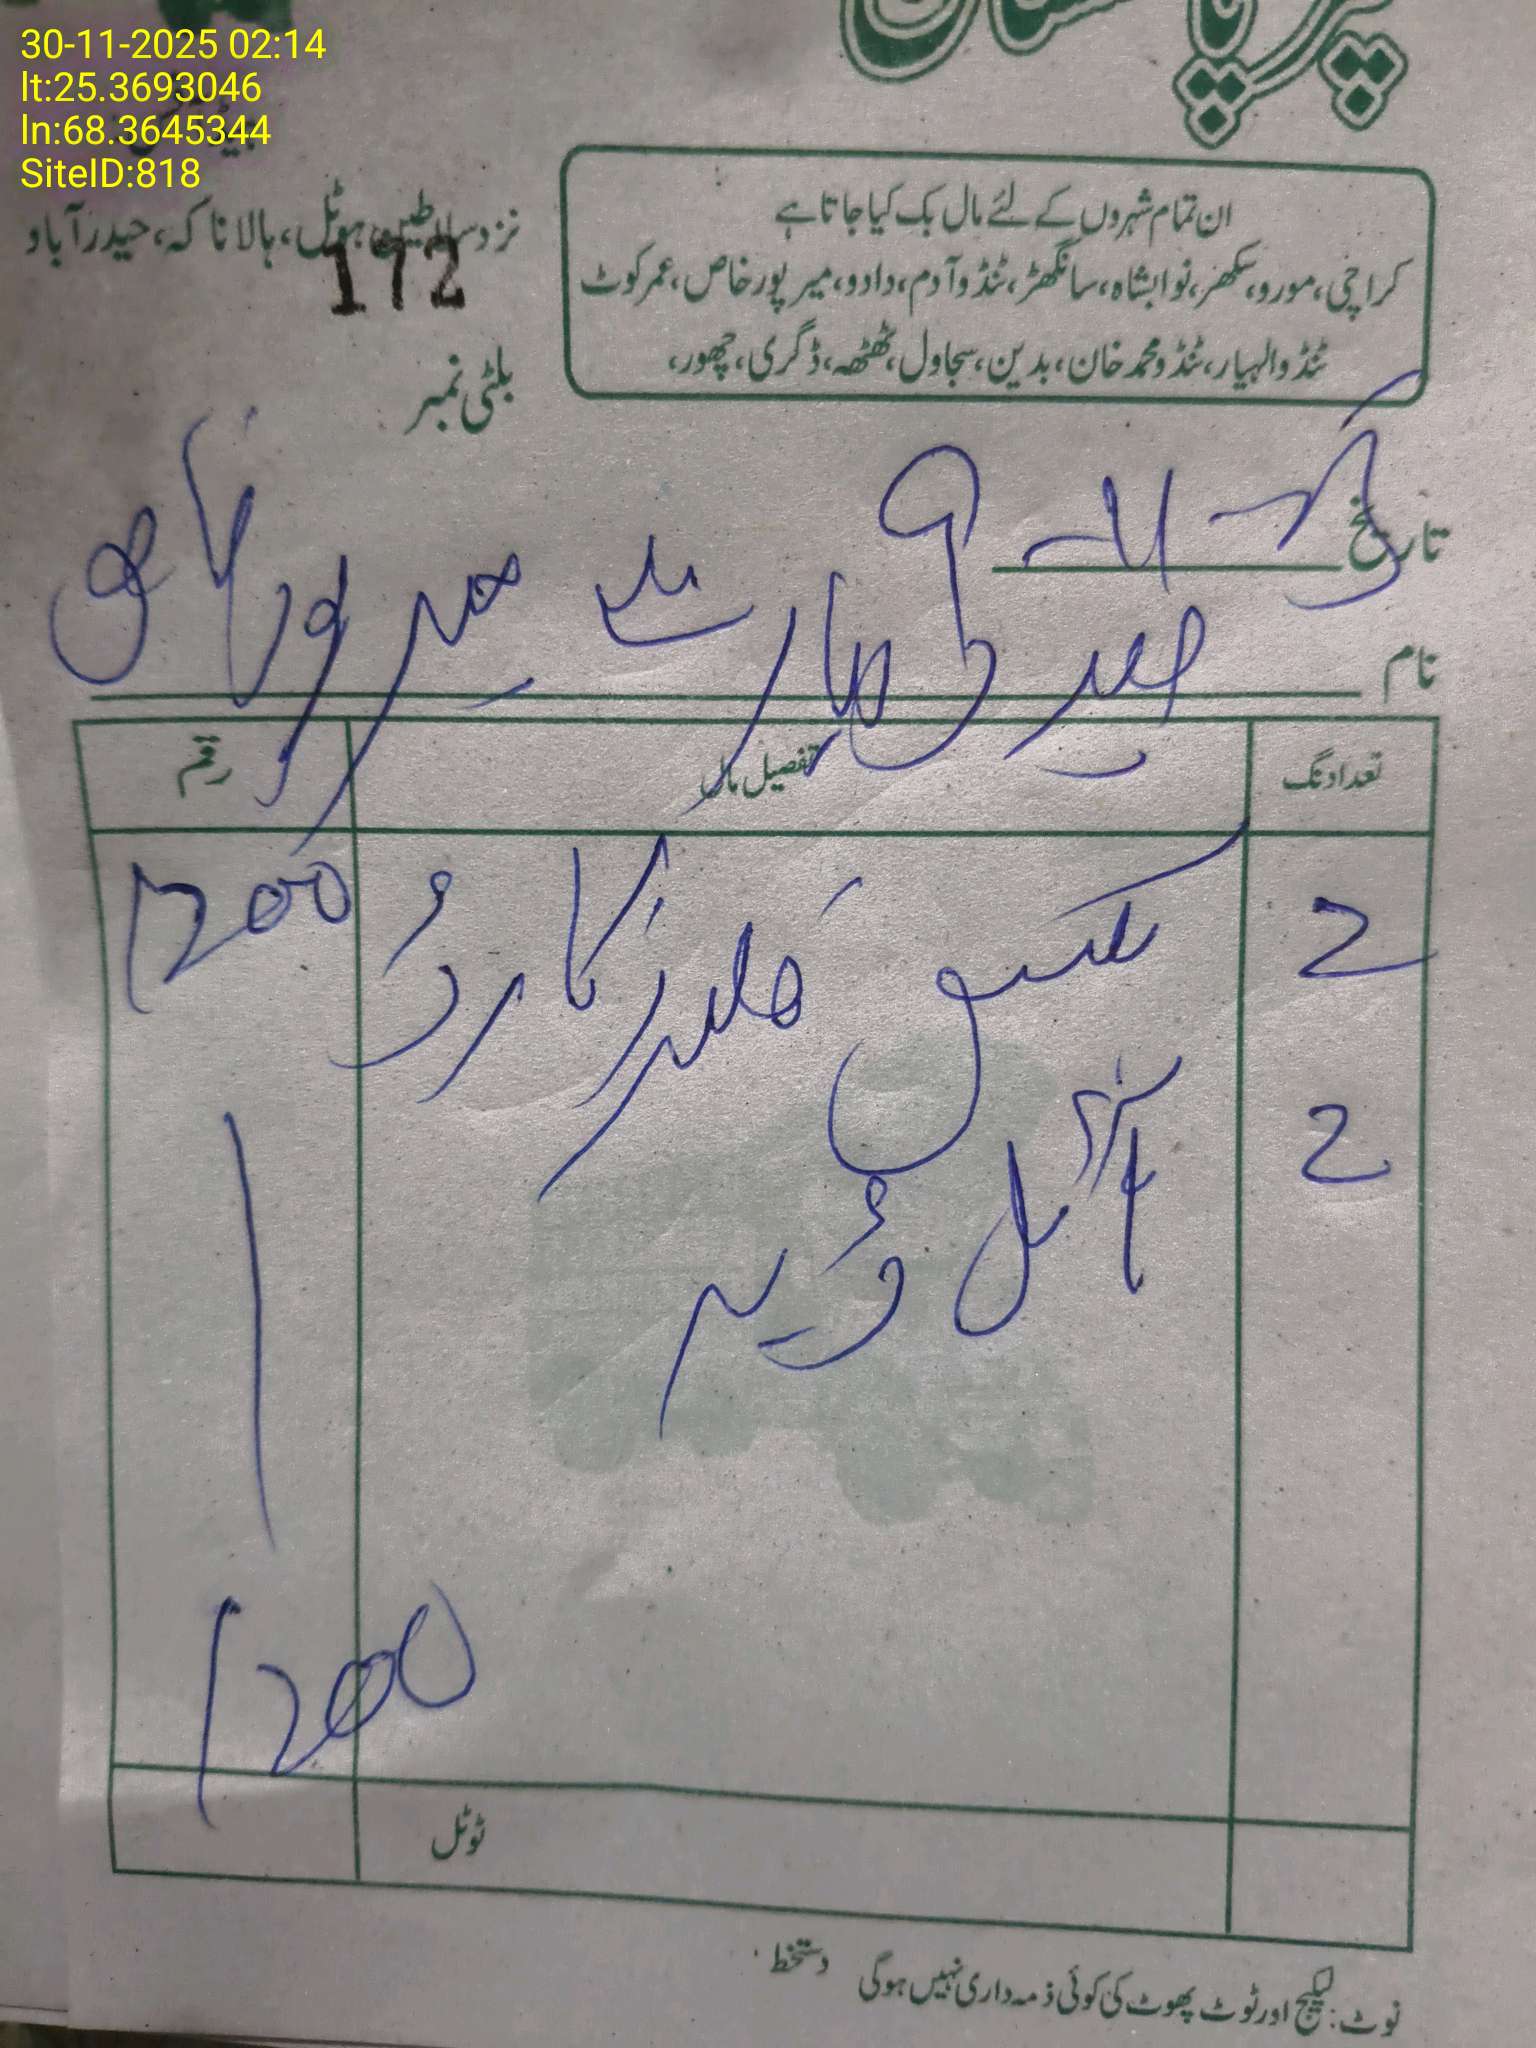 30-11-2025 02:14
lt:25.3693046
ln:68.3645344
SiteID:818
پاکستان
ان تمام شہروں کے لئے مال بک کیا جاتا ہے
کراچی، مورو، سکھر، نوابشاہ، سانگھڑ، ٹنڈو آدم، دادو، میر پور خاص، عمر کوٹ
ٹنڈو الہیار، ٹنڈو محمد خان، بدین، سجاول، ٹھٹھہ، ڈگری، چھور،
نزد سلاطین ہوٹل، ہالا ناکہ، حیدر آباد
172
بلٹی نمبر
تاریخ
نام میر پور خاص
تعداد نگ تفصیل مال رقم
2 بکس فلیز کارڈ 1200
2 آئل
1200
ٹوٹل
نوٹ: لیکیج اور ٹوٹ پھوٹ کی کوئی ذمہ داری نہیں ہوگی دستخط